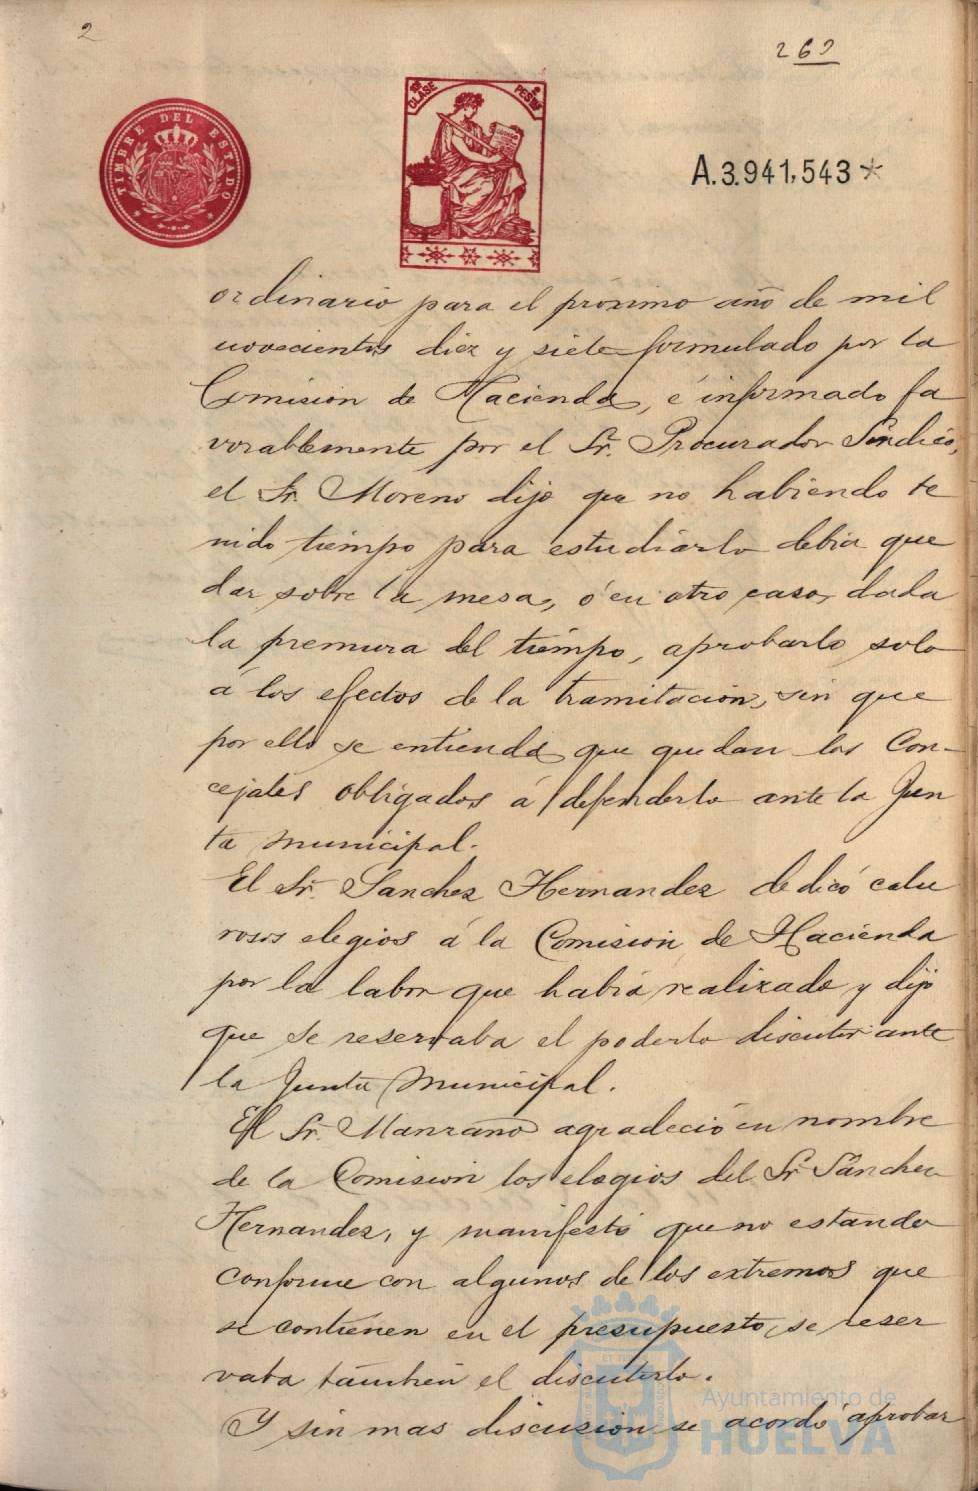 2
262
TIMBRE DEL ESTADO
CLASE
PESTAS
A.3.941,543
ordinario para el próximo año de mil
novecientos diez y siete formulado por la
Comision de Hacienda, é informado fa
vorablemente por el Sr. Procurador Sindico,
el Sr. Moreno dijo que no habiendo te
nido tiempo para estudiarlo debia que
dar sobre la mesa, ó en otro caso, dada
la premura del tiempo, aprobarlo solo
á los efectos de la tramitacion, sin que
por ello se entienda que quedan los Con-
cejales obligados á defenderlo ante la Jun
ta municipal.
El Sr. Sanchez Hernandez dedicó calu
rosos elogios á la Comision de Hacienda
por la labor que habia realizado y dijo
que se reservaba el poderlo discutir ante
la Junta Municipal.
El Sr. Manzano agradeció en nombre
de la Comision los elogios del Sr Sánchez
Hernandez, y manifestó que no estando
conforme con algunos de los extremos que
se contienen en el presupuesto, se reser
vaba tambien el discutirlo.
Y sin mas discusion se acordó aprobar
Ayuntamiento de
HUELVA